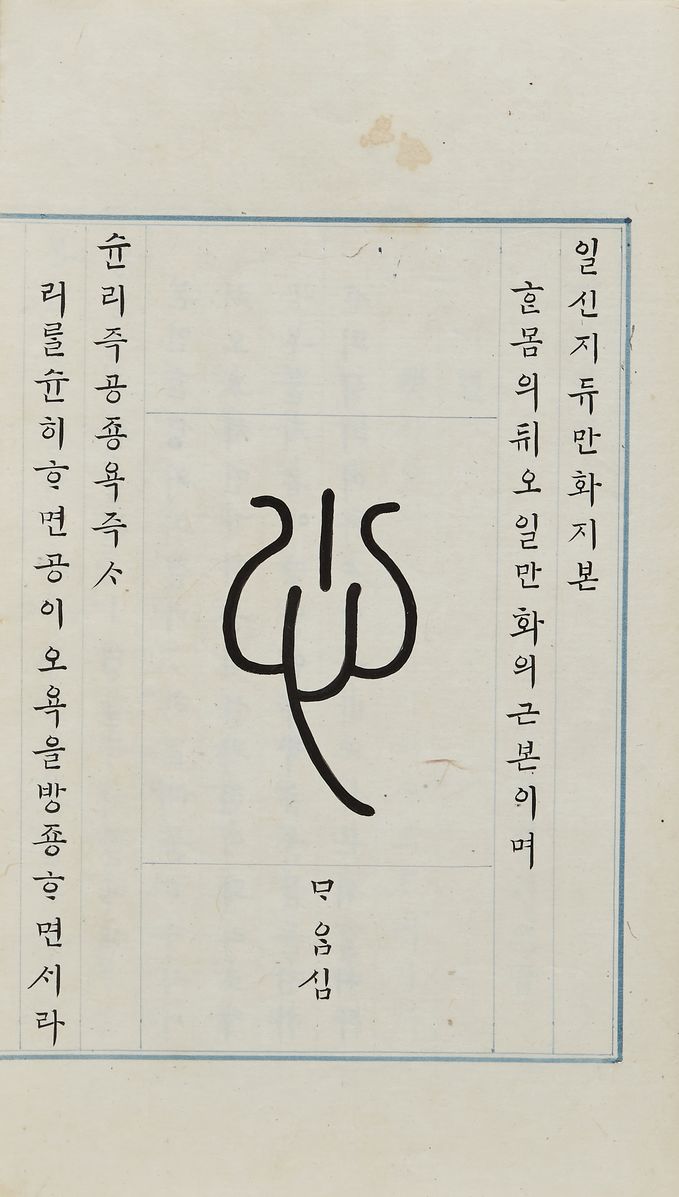 일신지듀만화지본
ᄒᆞᆫ몸의ᄃᆔ오일만화의근본이며
心
ᄆᆞ음심
슌리즉공죵욕즉ᄉᆞ
리를슌히ᄒᆞ면공이오욕을방죵ᄒᆞ면ᄉᆡ라